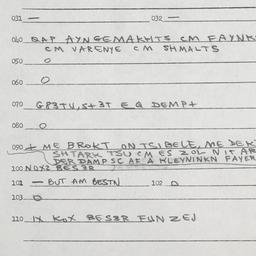 031 — 032 —
040 QAP AYNGEMAKHTS CM FAYNK
CM VARENYE CM SHMALTS
050 O
060 O
070 GPZTU,S+3T E Q DEMP+
080 O
090 + ME BROKT ON TSIBELE, ME DEK
SHTARK TSU CM ES ZOL NIT AR
DER DAMP SC AF A KLEYNINKN FAYER
100 NOX2 BES3R
101 — BUT AM BESTN 102 O
103 O
110 IX KOX BES3R FUN ZEJ